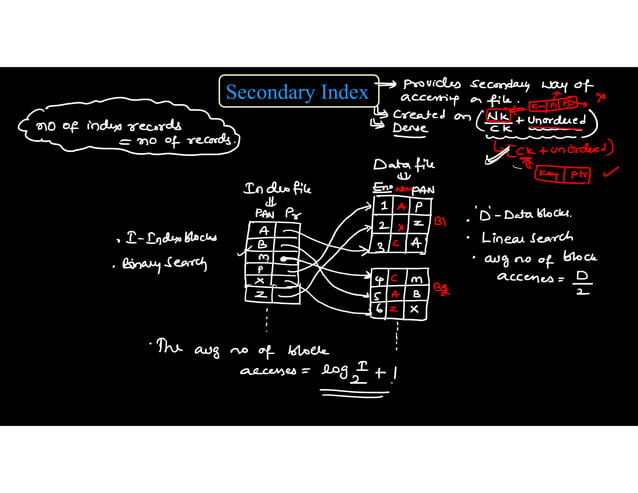 Secondary Index
→ Provides secondary way of
accessing a file.
→ Created on (NK + unordered)
CK
→ Dense
K P1 P2 ×
(CK + unordered)
Key Ptr ✓
no of index records
= no of records.
Data file
Eno PAN
1 A P
2 X Z
3 C A
B1
4 C M
5 A B
6 Z X
B2
Index file
PAN Pr
A
B
M
P
X
Z
. I - Index blocks
. Binary Search
. 'D' - Data blocks.
. Linear Search
. avg no of block
accesses = D/2
. The avg no of block
accesses = log I/2 + 1